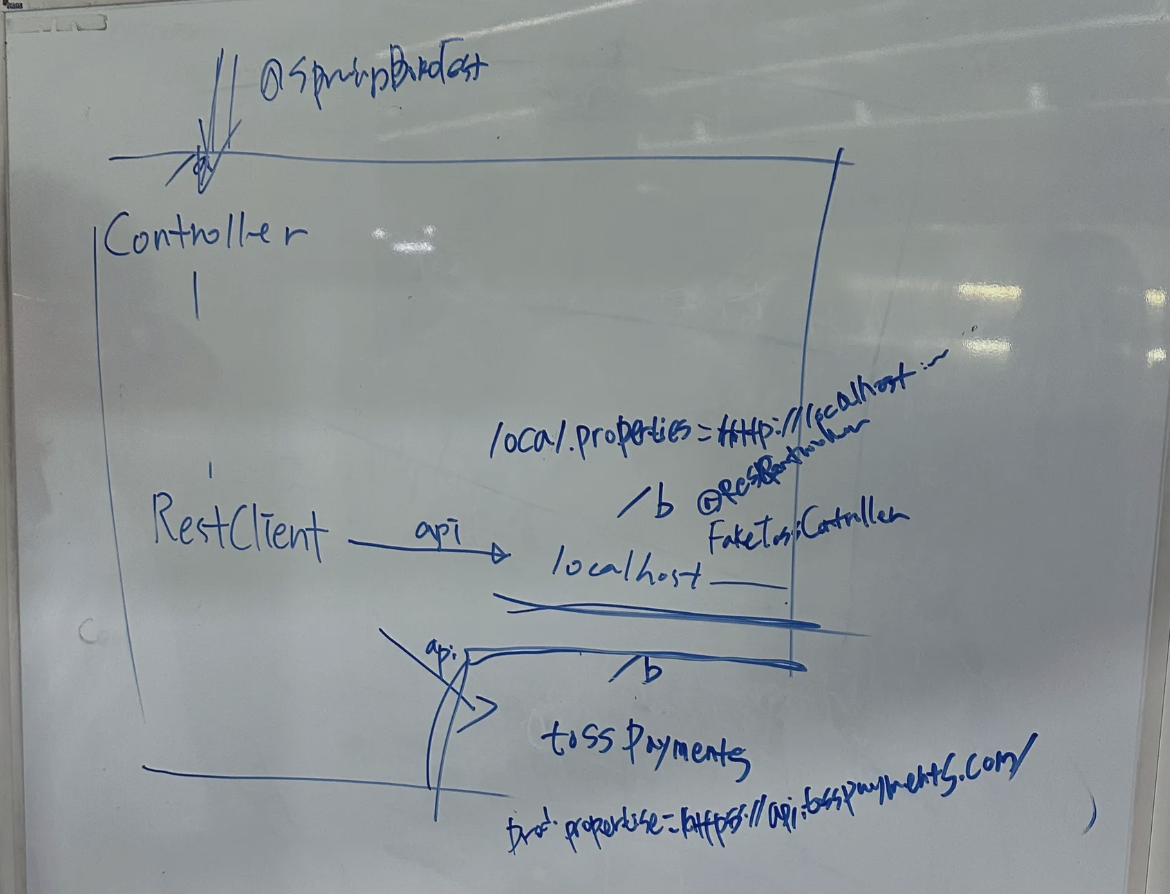 @SpringBootTest
Controller
local.properties = http://localhost:~
/b @RestController
FakeTossController
RestClient api
localhost
api
/b
toss Payments
prod.propertise=https://api.tosspayments.com/